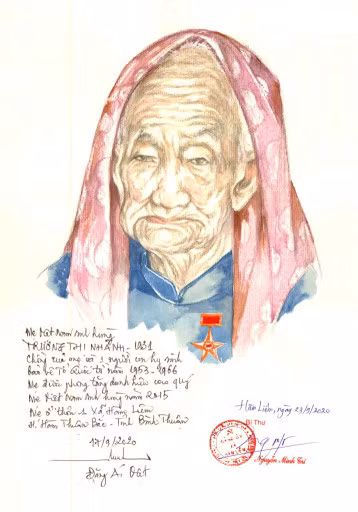 Mẹ Việt Nam anh hùng
TRƯƠNG THỊ NHÀNH - 1931
Chồng của mẹ và 3 người con hy sinh
bảo vệ Tổ Quốc từ năm 1953 - 1966
Mẹ được phong tặng danh hiệu cao quý
Mẹ Việt Nam anh hùng năm 2015
Mẹ ở thôn 1 Xã Hàm Liêm
H. Hàm Thuận Bắc - Tỉnh Bình Thuận
17/9/2020
Đặng Ái Việt
Hàm Liêm, ngày 23/9/2020
Bí Thư
Nguyễn Minh Trí